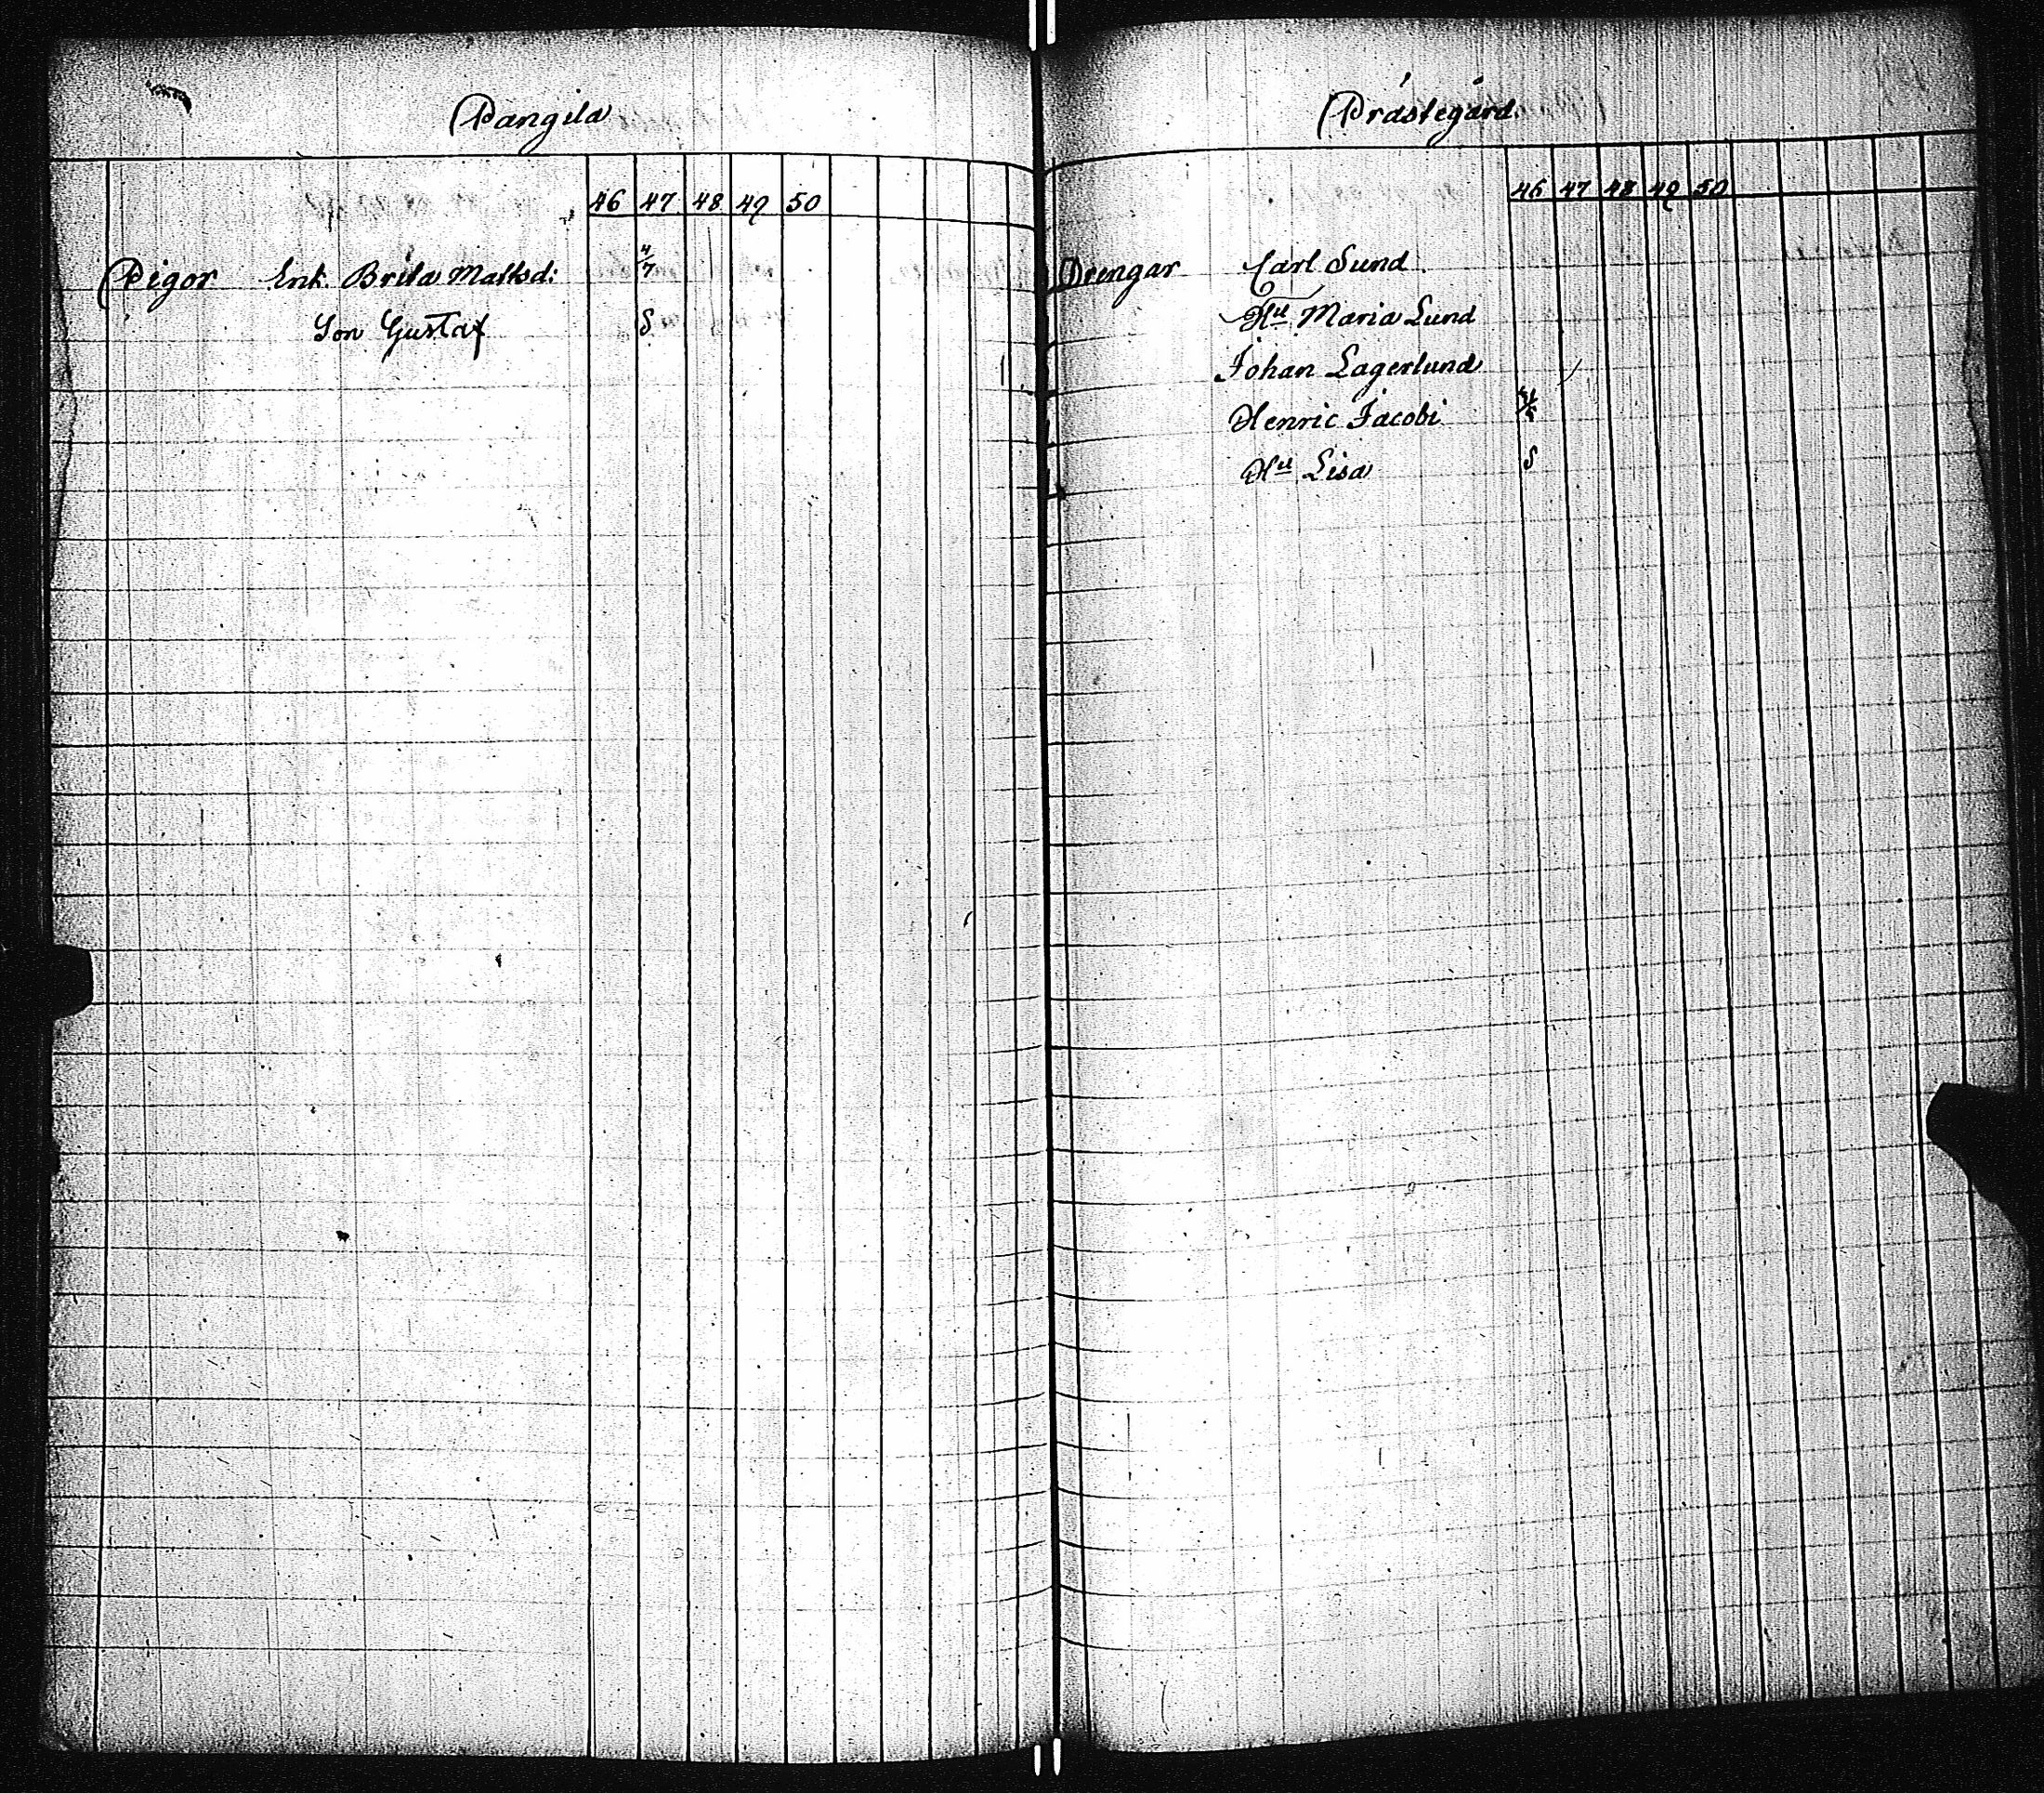 Pangila
46 47 48 49 50
4/7
Pigor Enk. Brita Mattsd:
Son Gustaf S
Prästegård.
46 47 48 49 50
Drengar Carl Sund
Hu Maria Lund
Johan Lagerlund
Henric Jacobi
Hu Lisa S